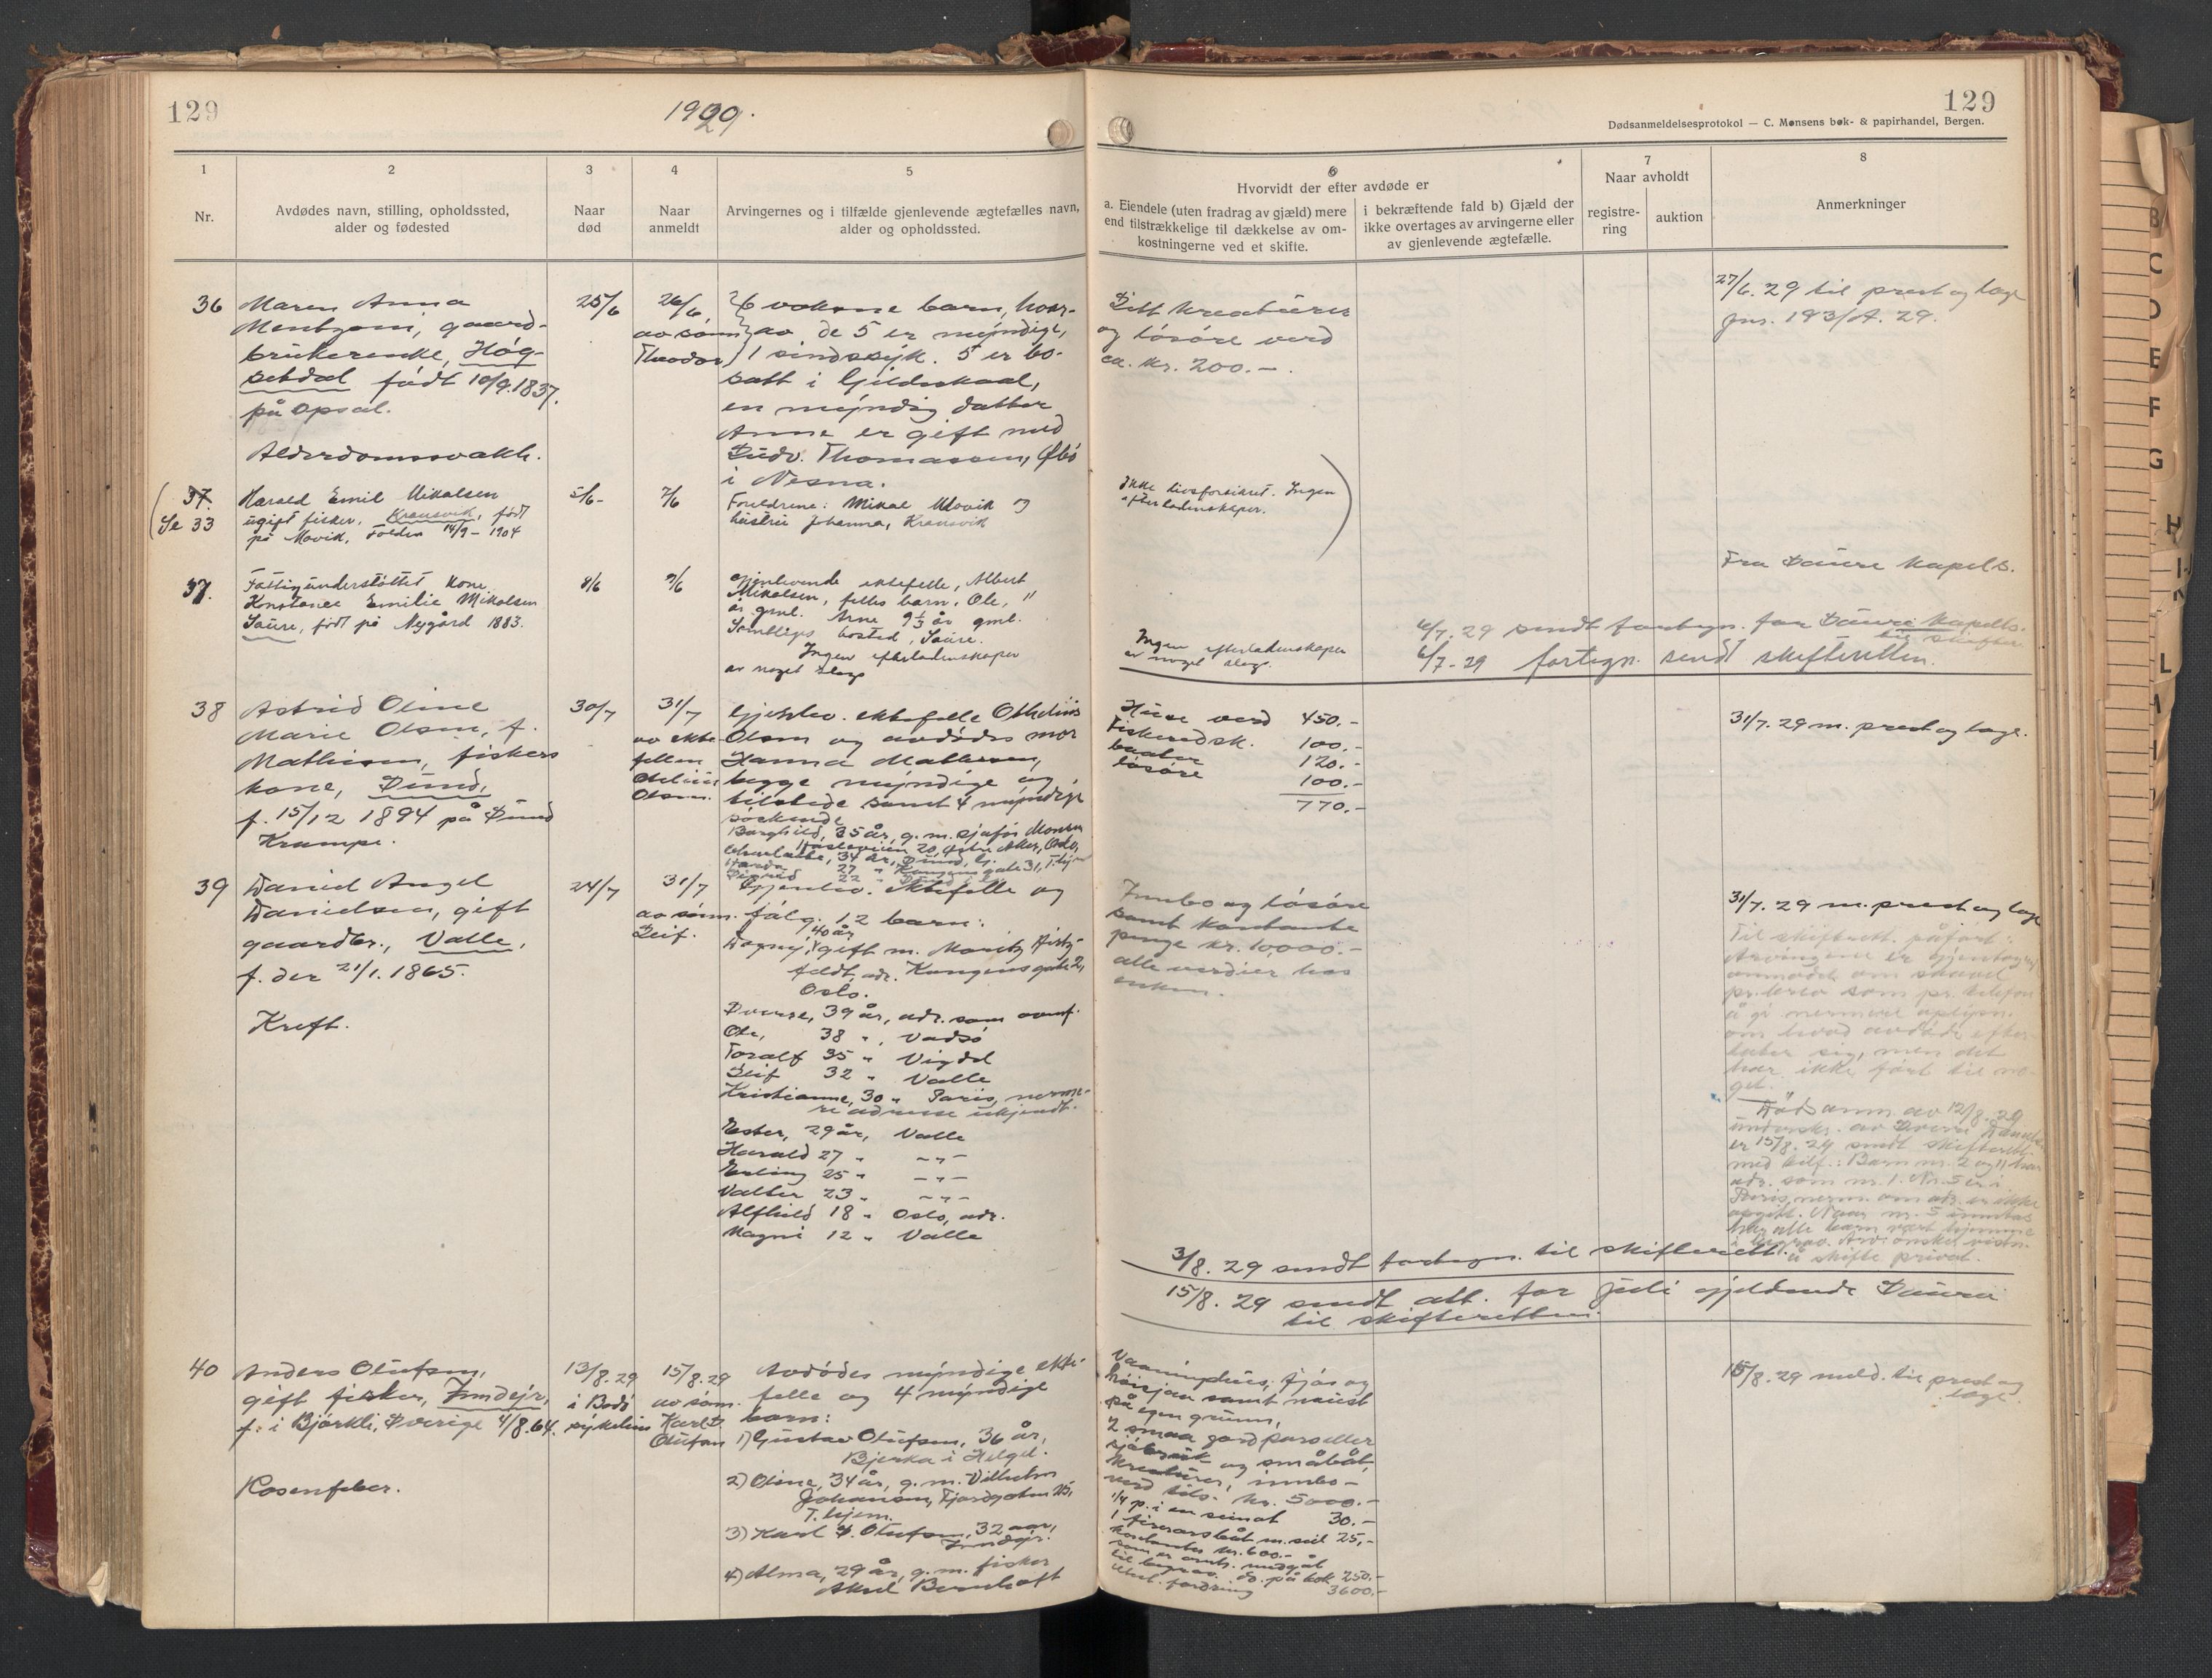 129
1929.
129
Dødsanmeldelsesprotokol — C. Monsens bok- & papirhandel, Bergen.
1
2
3
4
5
6
7
8
Nr.
Avdødes navn, stilling, opholdssted,
alder og fødested
Naar
død
Naar
anmeldt
Arvingernes og i tilfælde gjenlevende ægtefælles navn,
alder og opholdssted.
Hvorvidt der efter avdøde er
a. Eiendele (uten fradrag av gjæld) mere
end tilstrækkelige til dækkelse av om-
kostningerne ved et skifte.
i bekræftende fald b) Gjæld der
ikke overtages av arvingerne eller
av gjenlevende ægtefælle.
Naar avholdt
registre-
ring
auktion
Anmerkninger
36
Maren Anna
Mentzoni, gaard-
brukerenke, Høg-
setdal født 10/9.1837.
på Opsal.
Alderdomssvakh.
25/6
26/6
av sønn
Theodor
6 voksne barn, hvor-
av de 5 er myndige,
1 sindssyk. 5 er bo-
satt i Gildeskaal,
en myndig datter
Anne er gift med
Ludv. Thomassen,
i Nesna.
Litt kreaturer
og løsøre verd
ca. kr. 200.-.
27/6. 29 til prest og læge
Jnr. 193/A. 29.
37.
Se 33
Harald Emil Mikalsen
ugift fisker, født
på Movik, Folden 14/9 - 1904
5/6-
7/6
Foreldrene: Mikal og
hustru Johanna,
Ikke livsforsikret. Ingen
efterladenskaper.
Fra Saura kapels.
37.
Fattigunderstøttet kone
Konstanse Emilie Mikalsen
Saura, født på Nygård 1883.
8/6
9/6
Gjenlevende ektefelle, Albert
Mikalsen, felles barn, Ole, 11
år gml. Arne 9 1/3 år gml.
Samtliges bosted, Saura.
Ingen efterladenskaper
av noget slags
Ingen efterladenskaper
av noget slags.
6/7. 29 sendt fortegn. for Saura kapels.
til skifter
6/7 - 29 fortegn. sendt skifteretten.
38
Astrid Oline
Marie Olsen, f.
Mathisen, fiskers
kone, Sund,
f. 15/12 1894 på Sund
Krampe.
30/7
31/7
av ekte-
fellen
Othelius
Olsen.
Gjenlev. ektefelle Othelius
Olsen og avdødes mor
Hanna Mathisen,
begge myndige og
tilstede samt 4 myndige
søskende
Borghild, 35 år, g. m. sjafør Monsen
20, Østre Aker, Oslo,
34 år, Sund, G.
27 " Kongensgate 31, T.hjem
Sigrid 22 " Sund i G.
Huse verd 450.-
Fiskeredsk. 100.-
baater 120.-
løsøre 100.-
770.-
31/7. 29 m. prest og læge.
39
Daniel Angel
Danielsen, gift
gaardbr., Valle,
f. der 21/1. 1865.
Kreft.
24/7
31/7
av sønn.
Leif.
Gjenlev. ektefelle og
følg. 12 barn:
40 år
Dagny, gift m. Moritz
feldt, adr. Kongensgate 2,
Oslo.
Sverre, 39 år, adr. som ovenf.
Ole, 38 ", Vadsø
Toralf 35 " Vigdel
Leif 32 " Valle
Kristianne, 30 " Paris, nerme-
re adresse ukjendt.
Ester, 29 år, Valle
Harald 27 " - " -
Erling 25 " - " -
Valter 23 " - " -
Alfhild 18 " Oslo, adr.
Magni 12 " Valle
Innbo og løsøre
samt kontante
penge kr. 10,000.-
alle verdier hos
enken.
31/7. 29 m. prest og læge
Til skifterett. påført:
Arvingene er gjentagne
anmodet om saavel
pr. brev som pr. telefon
å gi nermere oplysn.
om hvad avdøde efter-
later sig, men det
har ikke ført til no-
get.
Dødsanm. av 12/8. 29
underskr. av Sverre Daniels.
er 15/8. 29 sendt skifterett.
med tilf.: Barn nr. 2 og 11 har
adr. som nr. 1. Nr. 5 er i
Paris, nerm. om adr. er ikke
opgitt. Naar nr. 5 unntas
har alle barn vært hjemme
i begrav. Arv. ønsker vistn.
å skifte privat.
3/8. 29 sendt fortegn. til skifterett.
15/8. 29 sendt att. for juli gjeldende Saura
til skifteretten.
40
Anders Olufsen,
gift fisker, Inndyr,
f. i Bjørkli, Sverige 4/8.64.
Rosenfeber.
13/8.29
i Bodø
sykehus
15/8.29
av sønn.
Karl
Olufsen
Avdødes myndige ekte-
felle og 4 myndige
barn:
1) Gustav Olufsen, 36 år,
Bjerka i Helgel.
2) Oline, 34 år, g. m. Vilhelm
Johansen, Fjordgaten 25,
T.hjem.
3) Karl Olufsen, 32 aar,
Inndyr.
4) Alma, 29 år, g. m. fisker
Aksel Bernhoft
Vaaningshus, fjøs og
samt naust
på egen grunn,
2 smaa jordparseller
sjøbruk og småbåt,
kreaturer, innbo -
verd tils. kr. 5000.-
1/4 p. i en 30.-
1 båt m. seil 25,-
kontanter kr. 600.-
som er omtr. medgåt
til begrav. do. på bok 250.-
fordring 3600.-
15/8. 29 meld. til prest og
læge.